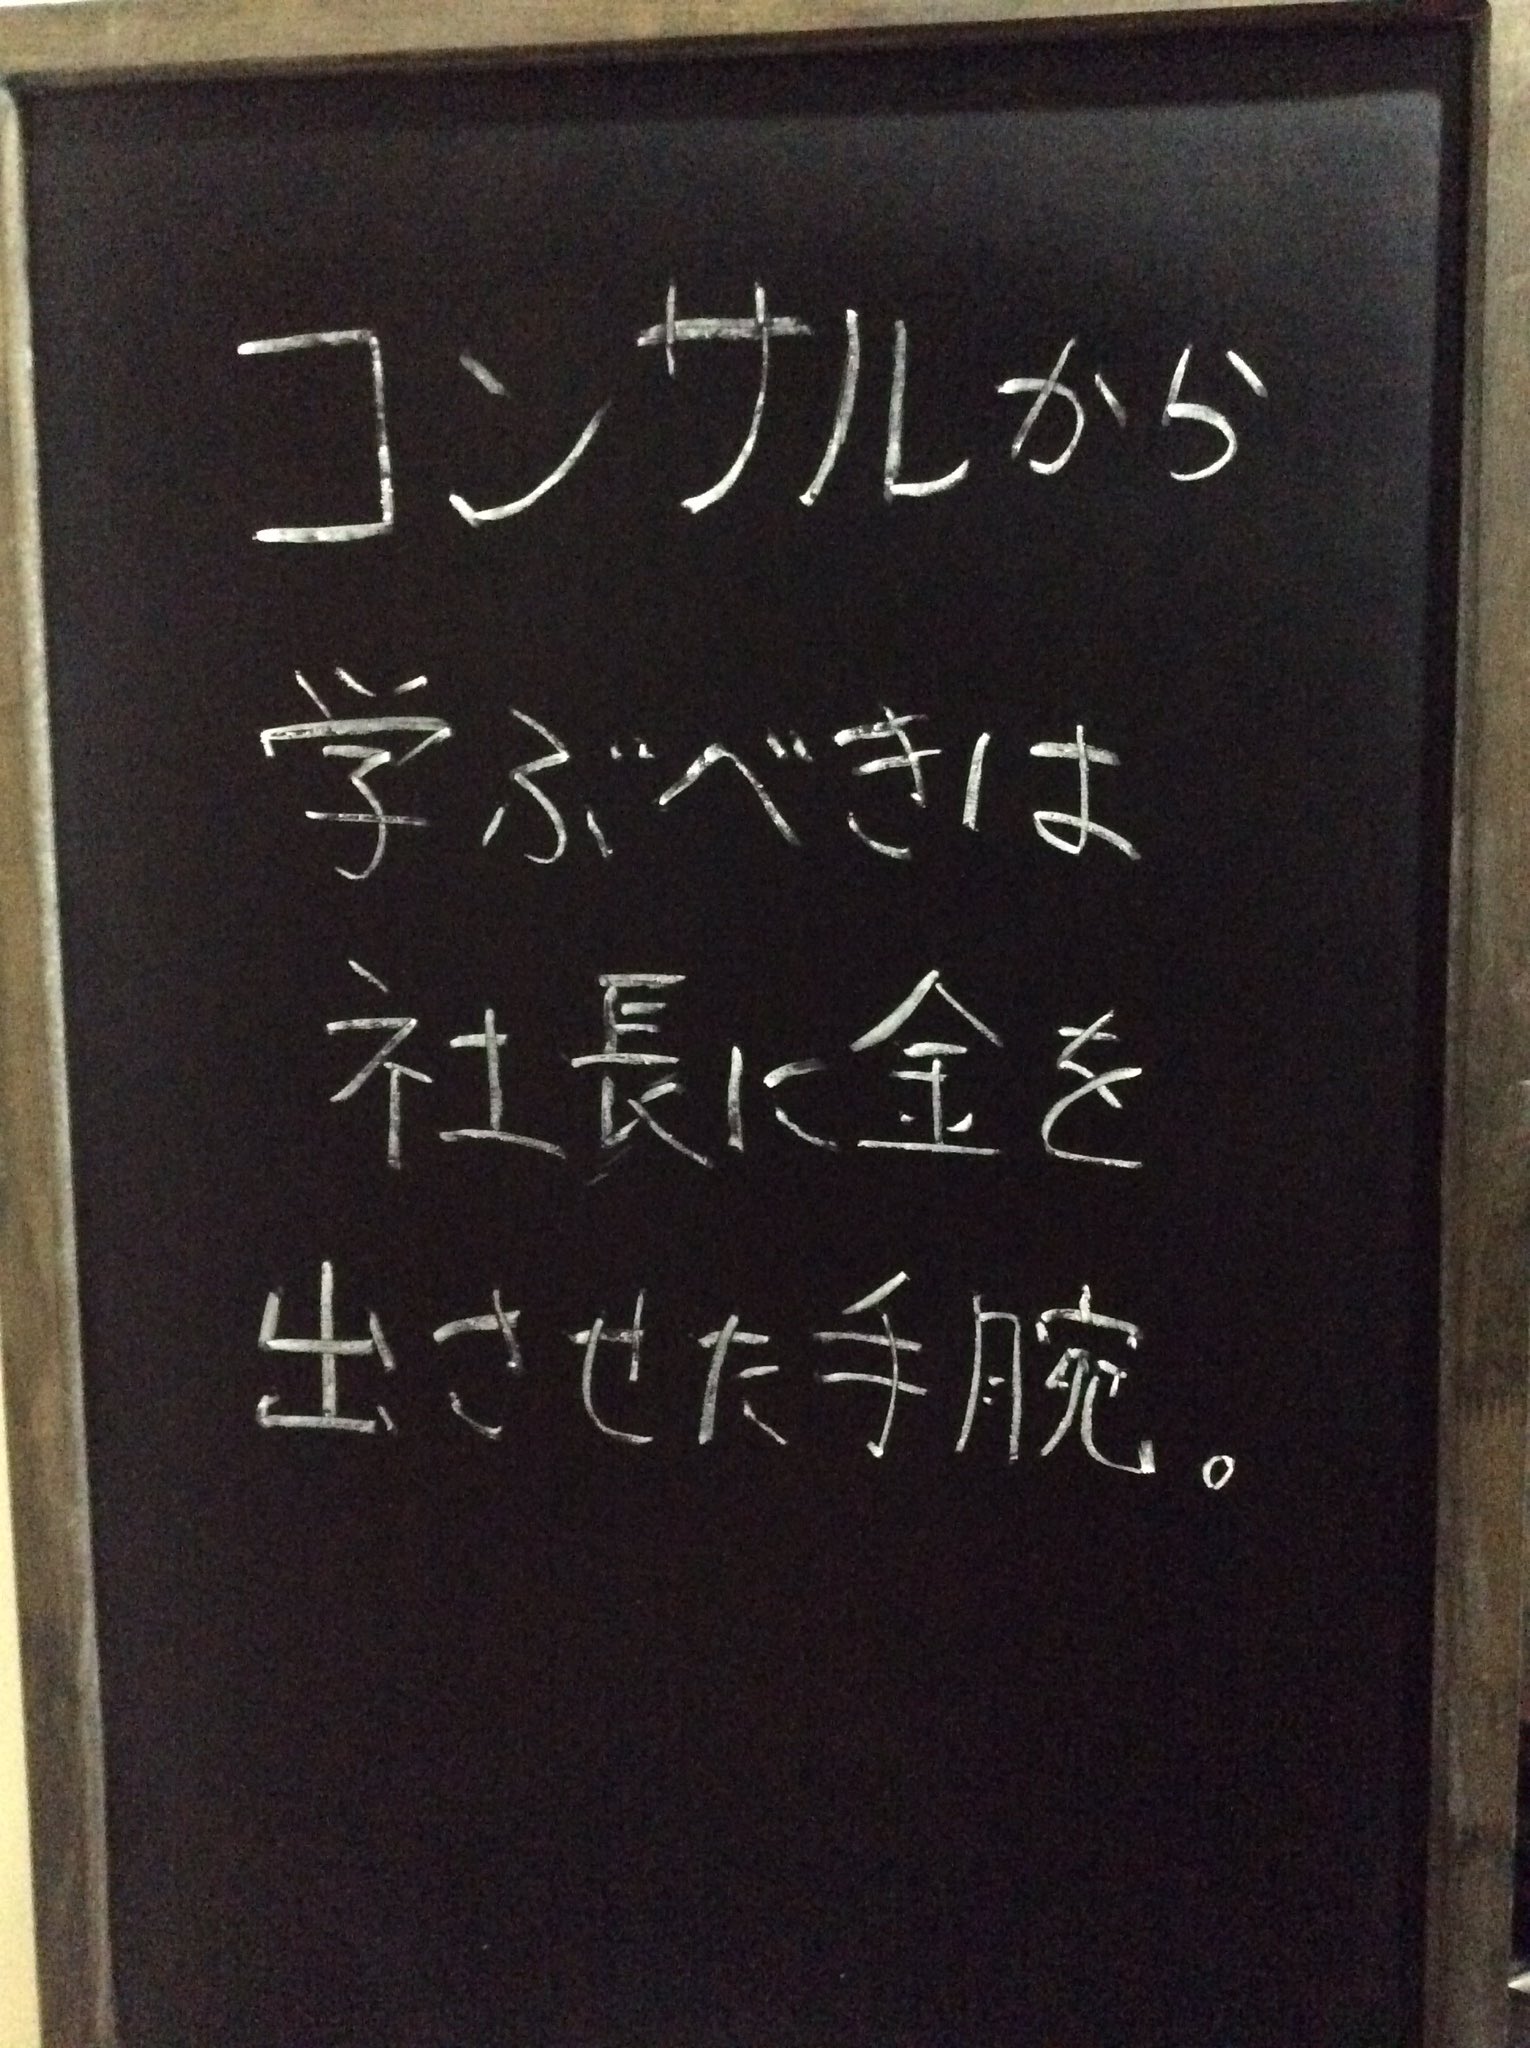 コンサルから
学ぶべきは
社長に金を
出させた手腕。